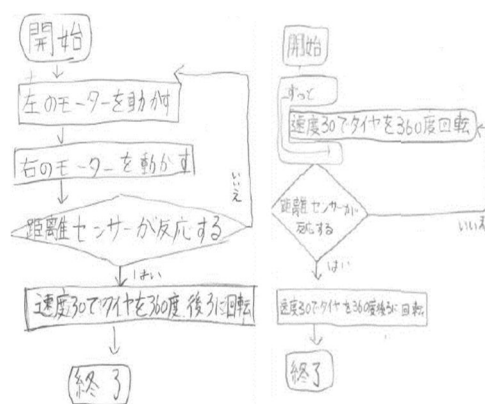 開始
左のモーターを動かす
右のモーターを動かす
いいえ
距離センサーが反応する
はい
速度30でタイヤを360度後ろに回転
終了
開始
ずっと
速度30でタイヤを360度回転
距離センサーが
反応する
いいえ
はい
速度30でタイヤを360度後ろに回転
終了